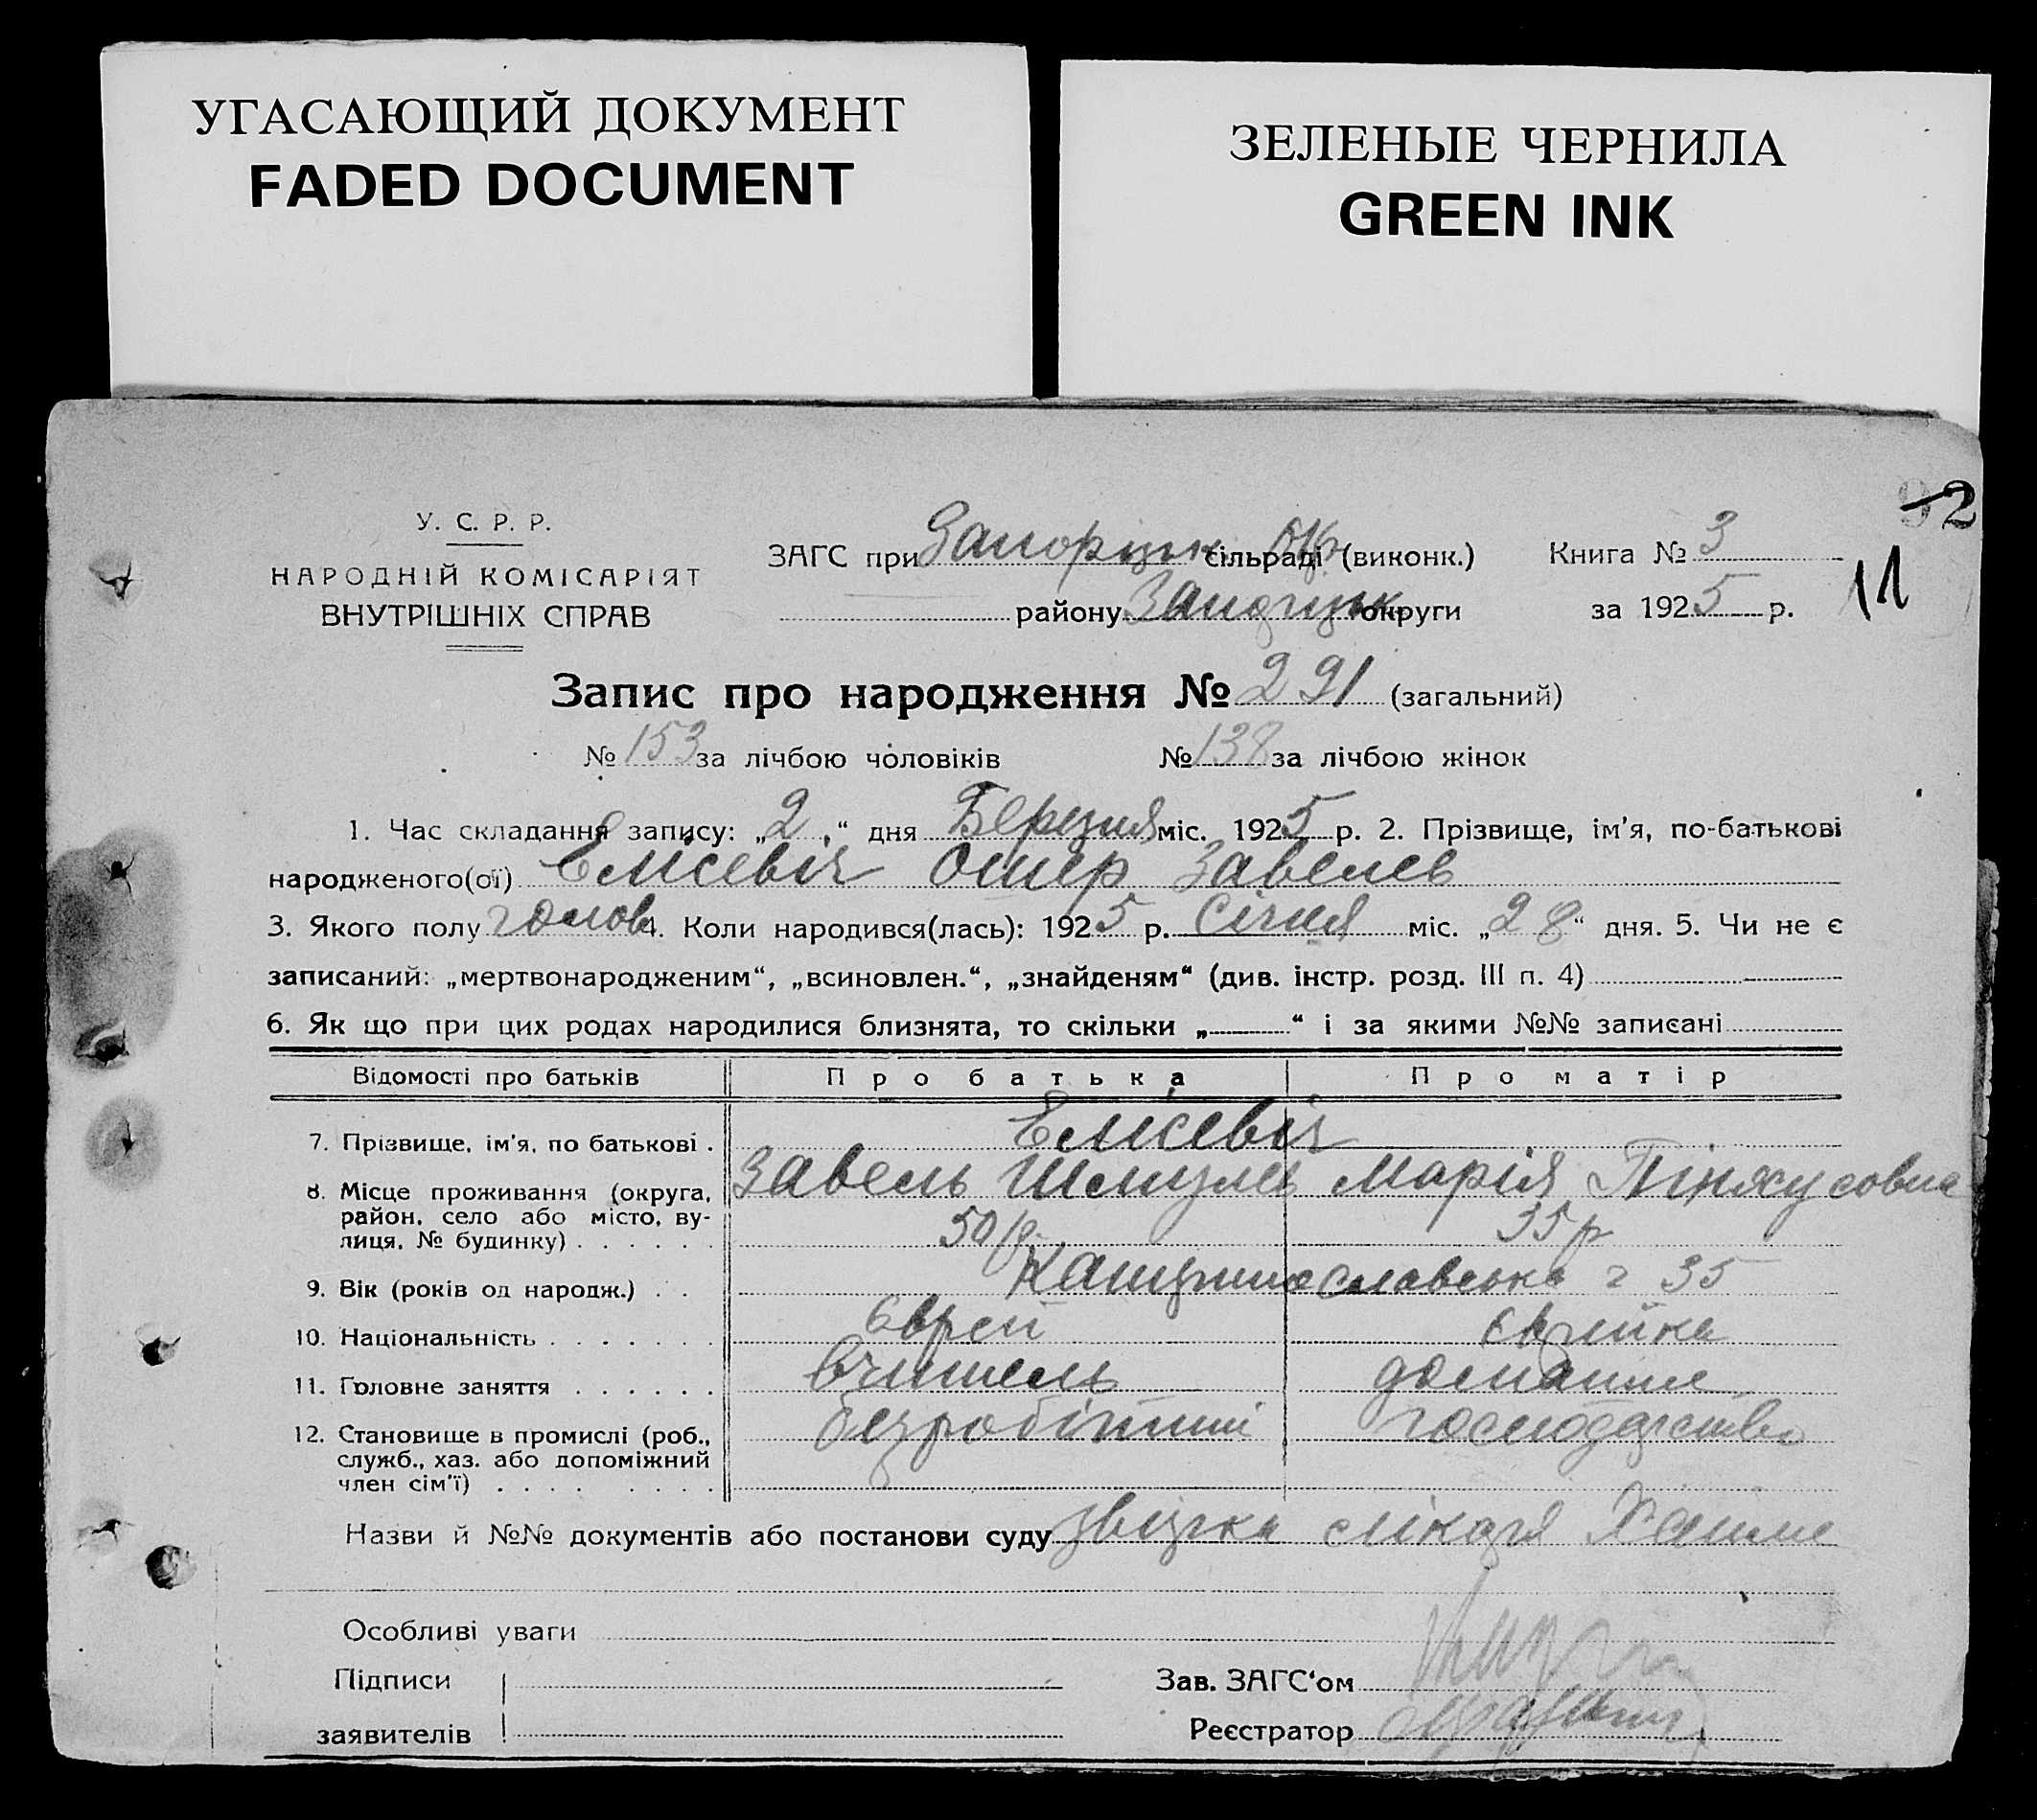 УГАСАЮЩИЙ ДОКУМЕНТ
FADED DOCUMENT
ЗЕЛЕНЫЕ ЧЕРНИЛА
GREEN INK
У. С. Р. Р.
НАРОДНІЙ КОМІСАРІЯТ
ВНУТРІШНІХ СПРАВ
ЗАГС при сільраді (виконк.)
району округи
Книга № 3
за 1925 р.
2
11
Запис про народження № 291 (загальний)
№ 153 за лічбою чоловіків № 138 за лічбою жінок
1. Час складання запису: „2“ дня Березня міс. 1925 р. 2. Прізвище, ім'я, по-батькові
народженого(ої) Елісевіч Ошер Завелев
3. Якого полу чолов 4. Коли народився(лась): 1925 р. Січня міс. „28“ дня. 5. Чи не є
записаний: „мертвонародженим“, „всиновлен.“, „знайденям“ (див. інстр. розд. III п. 4)
6. Як що при цих родах народилися близнята, то скільки „ “ і за якими №№ записані
Відомості про батьків Про батька Про матір
7. Прізвище, ім'я, по батькові . Елісевіч
Завель Шмулев Марія Пінхусовна
8. Місце проживання (округа, район, село або місто, вулиця, № будинку) . . . . . .
50 р. 35 р
9. Вік (років од народж.) . . 35
10. Національність . . . . . . . Єврей Єврейка
11. Головне заняття . . . . . . Вчитель домашне
12. Становище в промислі (роб., безробітний господарство
служб., хаз. або допоміжний
член сім'ї) . . . . . . . .
Назви й №№ документів або постанови суду лікаря
Особливі уваги
Підписи
заявителів
Зав. ЗАГС‘ом
Реєстратор